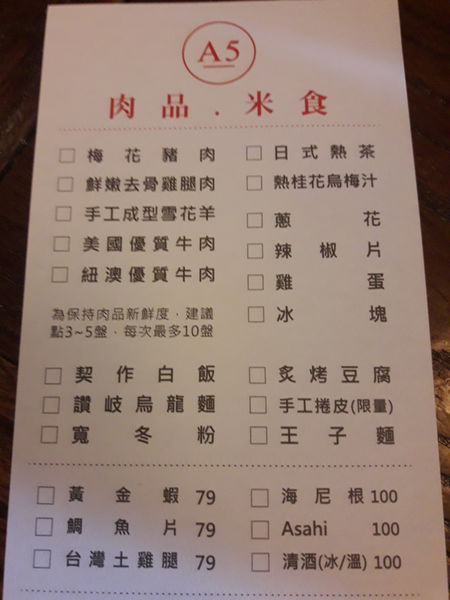 A5
肉品.米食
梅花豬肉
鮮嫩去骨雞腿肉
手工成型雪花羊
美國優質牛肉
紐澳優質牛肉
為保持肉品新鮮度，建議
點3~5盤，每次最多10盤
日式熱茶
熱桂花烏梅汁
蔥花
辣椒片
雞蛋
冰塊
契作白飯
讚岐烏龍麵
寬冬粉
炙烤豆腐
手工捲皮(限量)
王子麵
黃金蝦 79
鯛魚片 79
台灣土雞腿 79
海尼根 100
Asahi 100
清酒(冰/溫) 100